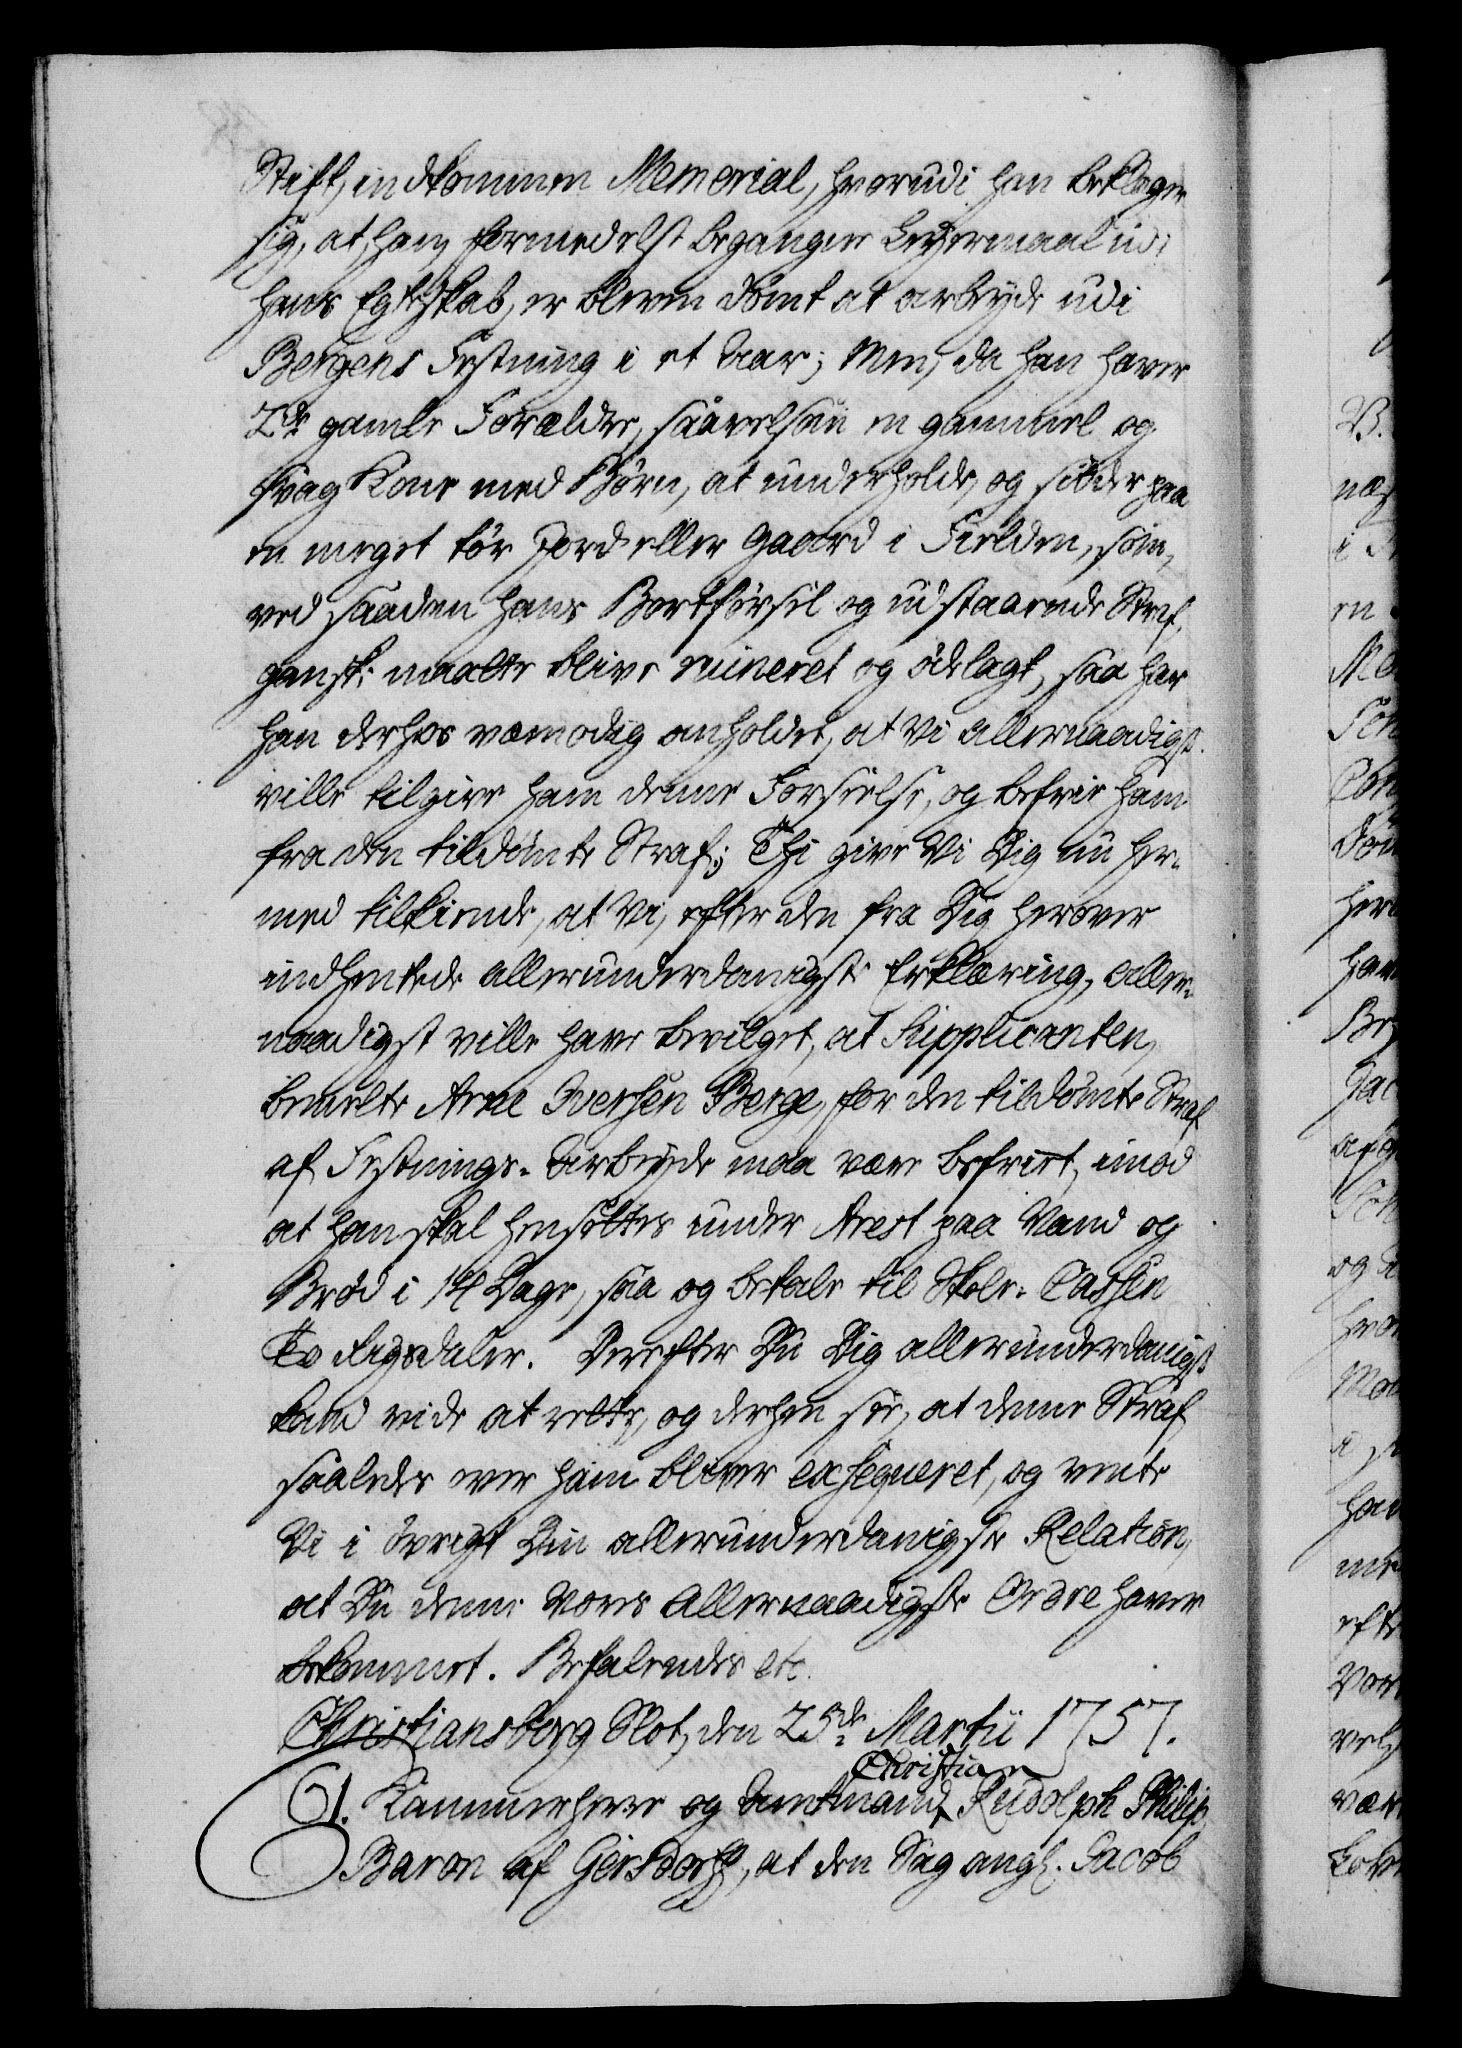 Stift, indkommen Memorial, hvorudi han beklager
sig, at han formedelst begangne Leyermaal udi
hans Egteskab, er bleven dømt at arbeyde udi
Bergens Festning i et Aar; Men, da han haver
2de gamle Forældre, saavelsom en gammel og
svag Kone med Børn, at underholde, og sidder paa
en meget tør Jord eller Gaard i Fielden, som,
ved saadan hans Bortførsel og udstaaende Straf,
ganske maatte blive ruineret og ødelagt, saa har
han derhos vemodig anholdet, at Vi allernaadigst
ville tilgive ham denne Forseelse, og befrie ham
fra den tildømte Straf; Thi give Vi Dig nu her-
med tilkiende, at Vi, efter den fra Dig herover
indhentede allerunderdanigste Erklæring, aller-
naadigst ville have bevilget, at Supplicanten,
bemelte Arne Iversen Berge, for den tildømte Straf
af Festnings-Arbeyde maa være befriet, imod
at han skal hensættes under Arest paa Vand og
Brød i 14 Dage, saa og betale til Skole-Cassen
To Rigsdaler. Derefter Du Dig allerunderdanigst
kand vide at rette, og derhen see, at denne Straf
saaledes over ham bliver exseqveret, og vente
Vi i øvrigt Din allerunderdanigste Relation,
at Du denne Vores Allernaadigste Ordre haver
bekommet. Befalendes etc.
Christiansborg Slot, den 25de Martii 1757.
Christian
61. Kammerherre og Amtmand Rudolph Philip,
Baron af Gersdorff, at den Sag angl. Jacob